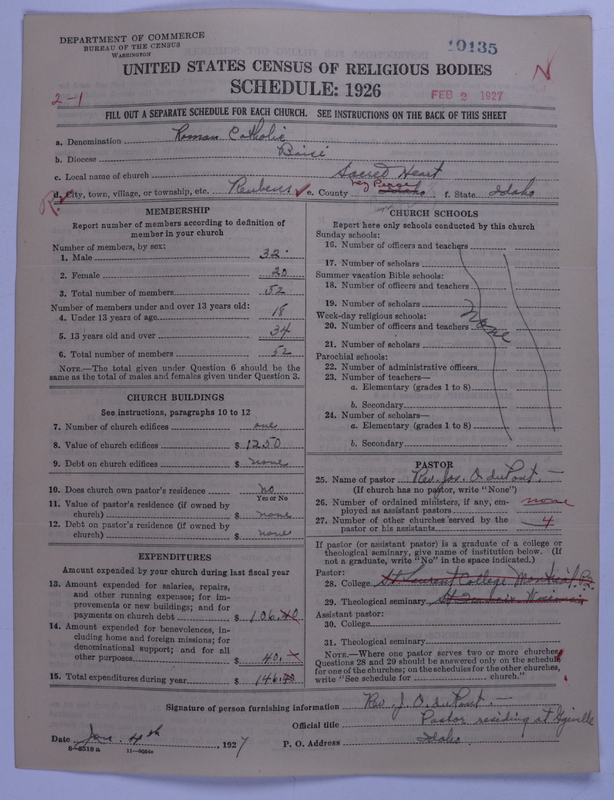 DEPARTMENT OF COMMERCE
BUREAU OF THE CENSUS
WASHINGTON
10135
UNITED STATES CENSUS OF RELIGIOUS BODIES
N
SCHEDULE: 1926
2-1
FEB 2 1927
FILL OUT A SEPARATE SCHEDULE FOR EACH CHURCH. SEE INSTRUCTIONS ON THE BACK OF THIS SHEET
a. Denomination Roman Catholic
b. Diocese Boise
c. Local name of church Sacred Heart
d. City, town, village, or township, etc. Reubens e. County Nez Perce Idaho f. State Idaho
MEMBERSHIP
Report number of members according to definition of member in your church
Number of members, by sex:
1. Male 32
2. Female 20
3. Total number of members 52
Number of members under and over 13 years old:
4. Under 13 years of age 18
5. 13 years old and over 34
6. Total number of members 52
NOTE.—The total given under Question 6 should be the same as the total of males and females given under Question 3.
CHURCH BUILDINGS
See instructions, paragraphs 10 to 12
7. Number of church edifices one
8. Value of church edifices $ 1250
9. Debt on church edifices $ none
10. Does church own pastor's residence No
Yes or No
11. Value of pastor's residence (if owned by
church) $ none
12. Debt on pastor's residence (if owned by
church) $ none
EXPENDITURES
Amount expended by your church during last fiscal year
13. Amount expended for salaries, repairs,
and other running expenses; for im-
provements or new buildings; and for
payments on church debt $ 106.
14. Amount expended for benevolences, in-
cluding home and foreign missions; for
denominational support; and for all
other purposes $ 40.
15. Total expenditures during year $ 146.
CHURCH SCHOOLS
Report here only schools conducted by this church
Sunday schools:
16. Number of officers and teachers
17. Number of scholars
Summer vacation Bible schools:
18. Number of officers and teachers
19. Number of scholars
Week-day religious schools:
20. Number of officers and teachers
None
21. Number of scholars
Parochial schools:
22. Number of administrative officers
23. Number of teachers—
a. Elementary (grades 1 to 8)
b. Secondary
24. Number of scholars—
a. Elementary (grades 1 to 8)
b. Secondary
PASTOR
25. Name of pastor Rev. Jos. O. duPont.
(If church has no pastor, write "None")
26. Number of ordained ministers, if any, em-
ployed as assistant pastors none
27. Number of other churches served by the
pastor or his assistants 4
If pastor (or assistant pastor) is a graduate of a college or
theological seminary, give name of institution below. (If
not a graduate, write "No" in the space indicated.)
Pastor:
28. College St. Laurent College Montreal
29. Theological seminary
Assistant pastor:
30. College
31. Theological seminary
NOTE.—Where one pastor serves two or more churches,
Questions 28 and 29 should be answered only on the schedule
for one of the churches; on the schedules for the other churches,
write "See schedule for church."
Signature of person furnishing information Rev. J. O. duPont.
Official title Pastor residing at
Date Jan. 4th, 1927 P. O. Address Idaho